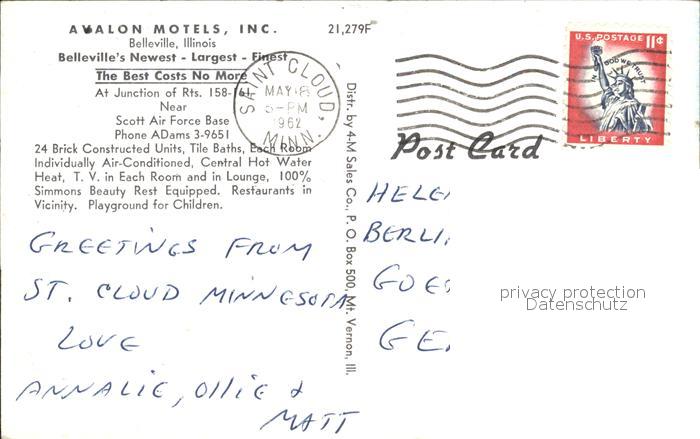 AVALON MOTELS, INC.
Belleville, Illinois
Belleville's Newest - Largest - Finest
The Best Costs No More
At Junction of Rts. 158-161
Near
Scott Air Force Base
Phone ADams 3-9651
24 Brick Constructed Units, Tile Baths, Each Room
Individually Air-Conditioned, Central Hot Water
Heat, T. V. in Each Room and in Lounge, 100%
Simmons Beauty Rest Equipped. Restaurants in
Vicinity. Playground for Children.
21,279F
SAINT CLOUD,
MAY 8
5-PM
1962
MINN.
GREETINGS FROM
ST. CLOUD MINNESOTA
LOVE
ANNALIE, OLLIE &
MATT
Distr. by 4-M Sales Co., P. O. Box 500, Mt. Vernon, Ill.
U.S. POSTAGE 11¢
IN GOD WE TRUST
LIBERTY
Post Card
HELE
BERLI
GOE
GE
privacy protection
Datenschutz